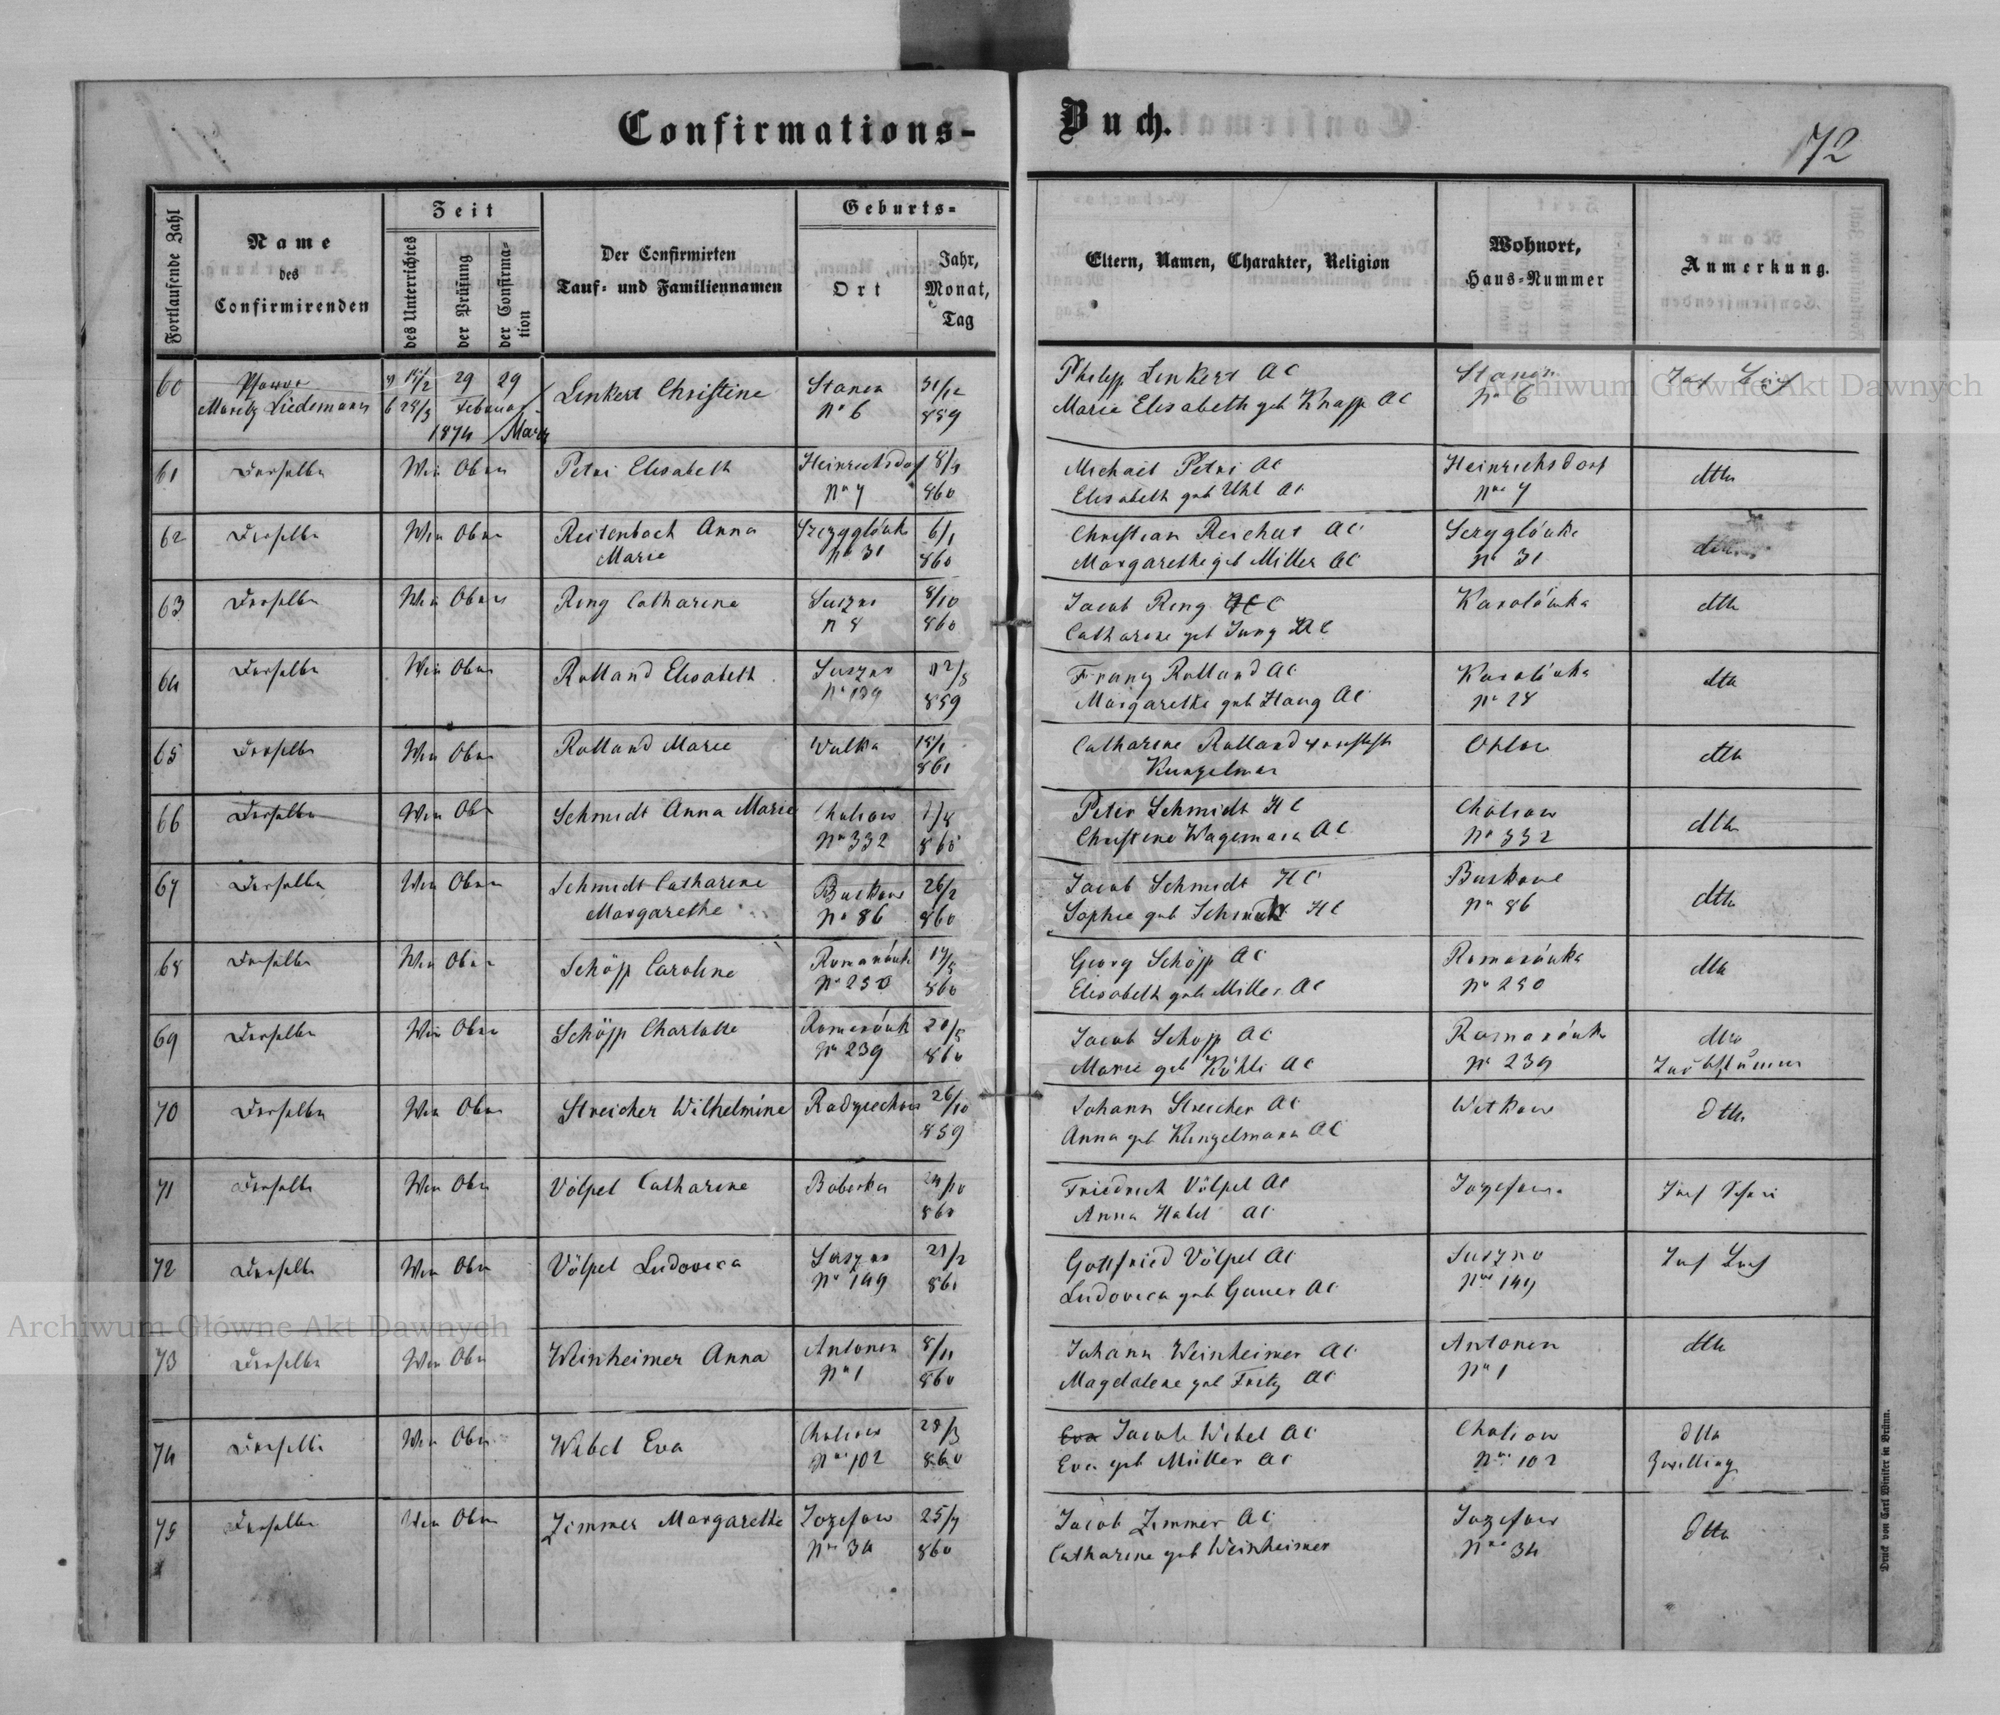 Confirmations-Buch.
72
Fortlaufende Zahl
Name
des
Confirmirenden
Zeit
des Unterrichtes
der Prüfung
der Confirma-
tion
Der Confirmirten
Tauf- und Familiennamen
Geburts-
Ort
Jahr,
Monat,
Tag
Eltern, Namen, Charakter, Religion
Wohnort,
Haus-Nummer
Anmerkung.
60 Pfarrer 29 29 Linkert Christine Stanin 31/12 Philipp Linkert AC Stanin
Moritz Liedemann Februar No 6 859 Marie Elisabeth geb Knapp AC No 6
1874 / März
61 Derselbe Wie Oben Petri Elisabeth Heinrichsdorf 8/3 Michael Petri AC Heinrichsdorf dtto
No 7 860 Elisabeth geb Uhl AC No 7
62 Derselbe Wie Oben Reitenbach Anna 6/1 Christian Reichert AC dtto
Marie No 31 860 Margarethe geb Miller AC No 31
63 Derselbe Wie Oben Ring Catharine Suszno 8/10 Jacob Ring Karolówka dtto
N 8 860 Catharine geb Jung
64 Derselbe Wie Oben Rolland Elisabeth Suszno Franz Rolland AC Karolówka dtto
No 139 859 Margarethe geb Haug AC No 28
65 Derselbe Wie Oben Rolland Marie Wulka Catharine Rolland dtto
861
66 Derselbe Wie Oben Schmidt Anna Marie Cholojow 1/8 Peter Schmidt HC Cholojow dtto
No 332 860 Christine Wagemann AC No 332
67 Derselbe Wie Oben Schmidt Catharine 26/2 Jacob Schmidt HC dtto
Margarethe No 86 860 Sophie geb Schmidt HC No 86
68 Derselbe Wie Oben Schöpp Caroline Romanówka Georg Schöpp AC Romanówka dtto
No 250 860 Elisabeth geb Miller AC No 250
69 Derselbe Wie Oben Schöpp Charlotte Romanówk 20/5 Jacob Schöpp AC Romanówk dtto
No 239 860 Marie geb AC No 239
70 Derselbe Wie Oben Streicher Wilhelmine Radziechow 26/10 Johann Streicher AC Witkow dtto
859 Anna geb Kunzelmann AC
71 Derselbe Wie Oben Völpel Catharine Boberka 24/10 Friedrich Völpel AC Jozefow
860 Anna Habel AC
72 Derselbe Wie Oben Völpel Ludovica Suszno 21/2 Gottfried Völpel AC Suszno
No 149 861 Ludovica geb Gauer AC No 149
73 Derselbe Wie Oben Weinheimer Anna Antonin 8/11 Johann Weinheimer AC Antonin dtto
No 1 860 Magdalene geb AC No 1
74 Derselbe Wie Oben Wibel Eva Cholojow 28/3 Eva Jacob Wibel AC Cholojow dtto
No 102 860 Eva geb Müller AC No 102 Zwilling
75 Derselbe Wie Oben Zimmer Margarethe Jozefow 25/7 Jacob Zimmer AC Jozefow dtto
No 34 860 Catharine geb Weinheimer No 34
Druck von Carl Winiker in Brünn.
Archiwum Główne Akt Dawnych
Archiwum Główne Akt Dawnych